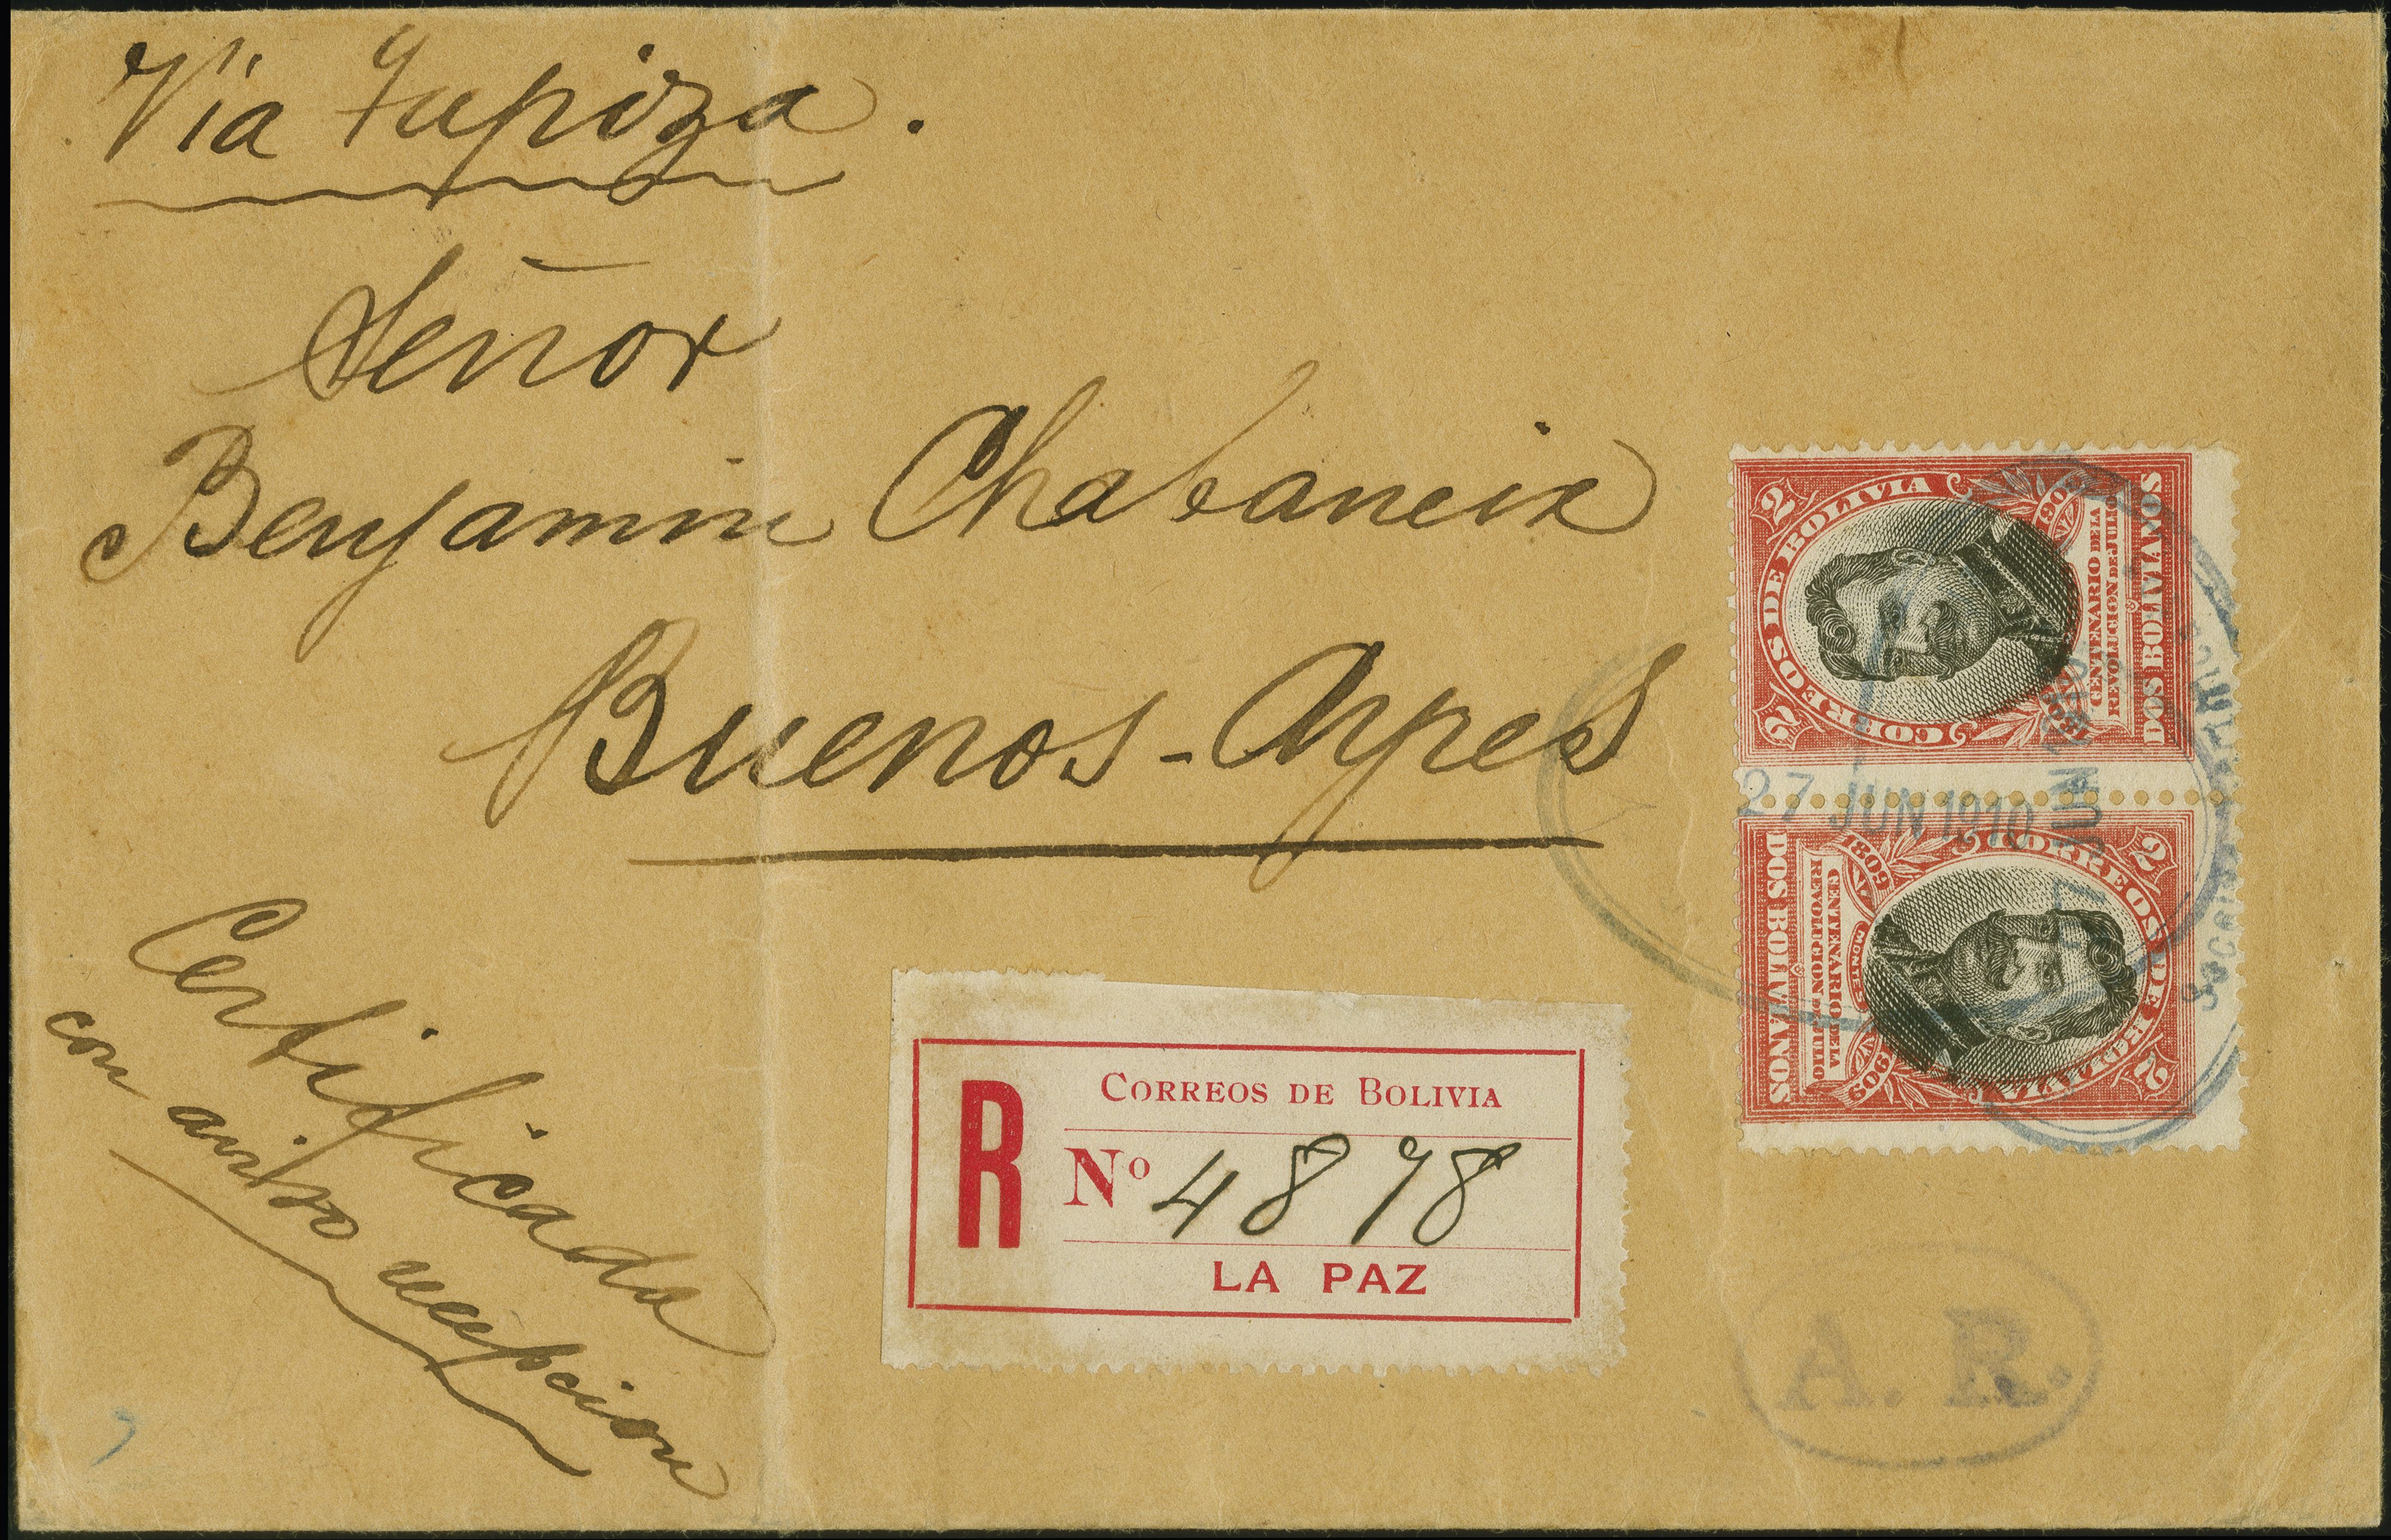 Via Tupiza.
Señor
Benjamin Chabaneix
Buenos-Ayres
Certificada
con aviso recepcion
R
CORREOS DE BOLIVIA
Nº 4878
LA PAZ
CORREOS DE BOLIVIA
2 2
1809 1909
CENTENARIO DE LA
REVOLUCION DE JULIO
DOS BOLIVIANOS
27 JUN 1910
27 JUN 1910
CORREOS DE BOLIVIA
2 2
1809 1909
MONTES
CENTENARIO DE LA
REVOLUCION DE JULIO
DOS BOLIVIANOS
A. R.